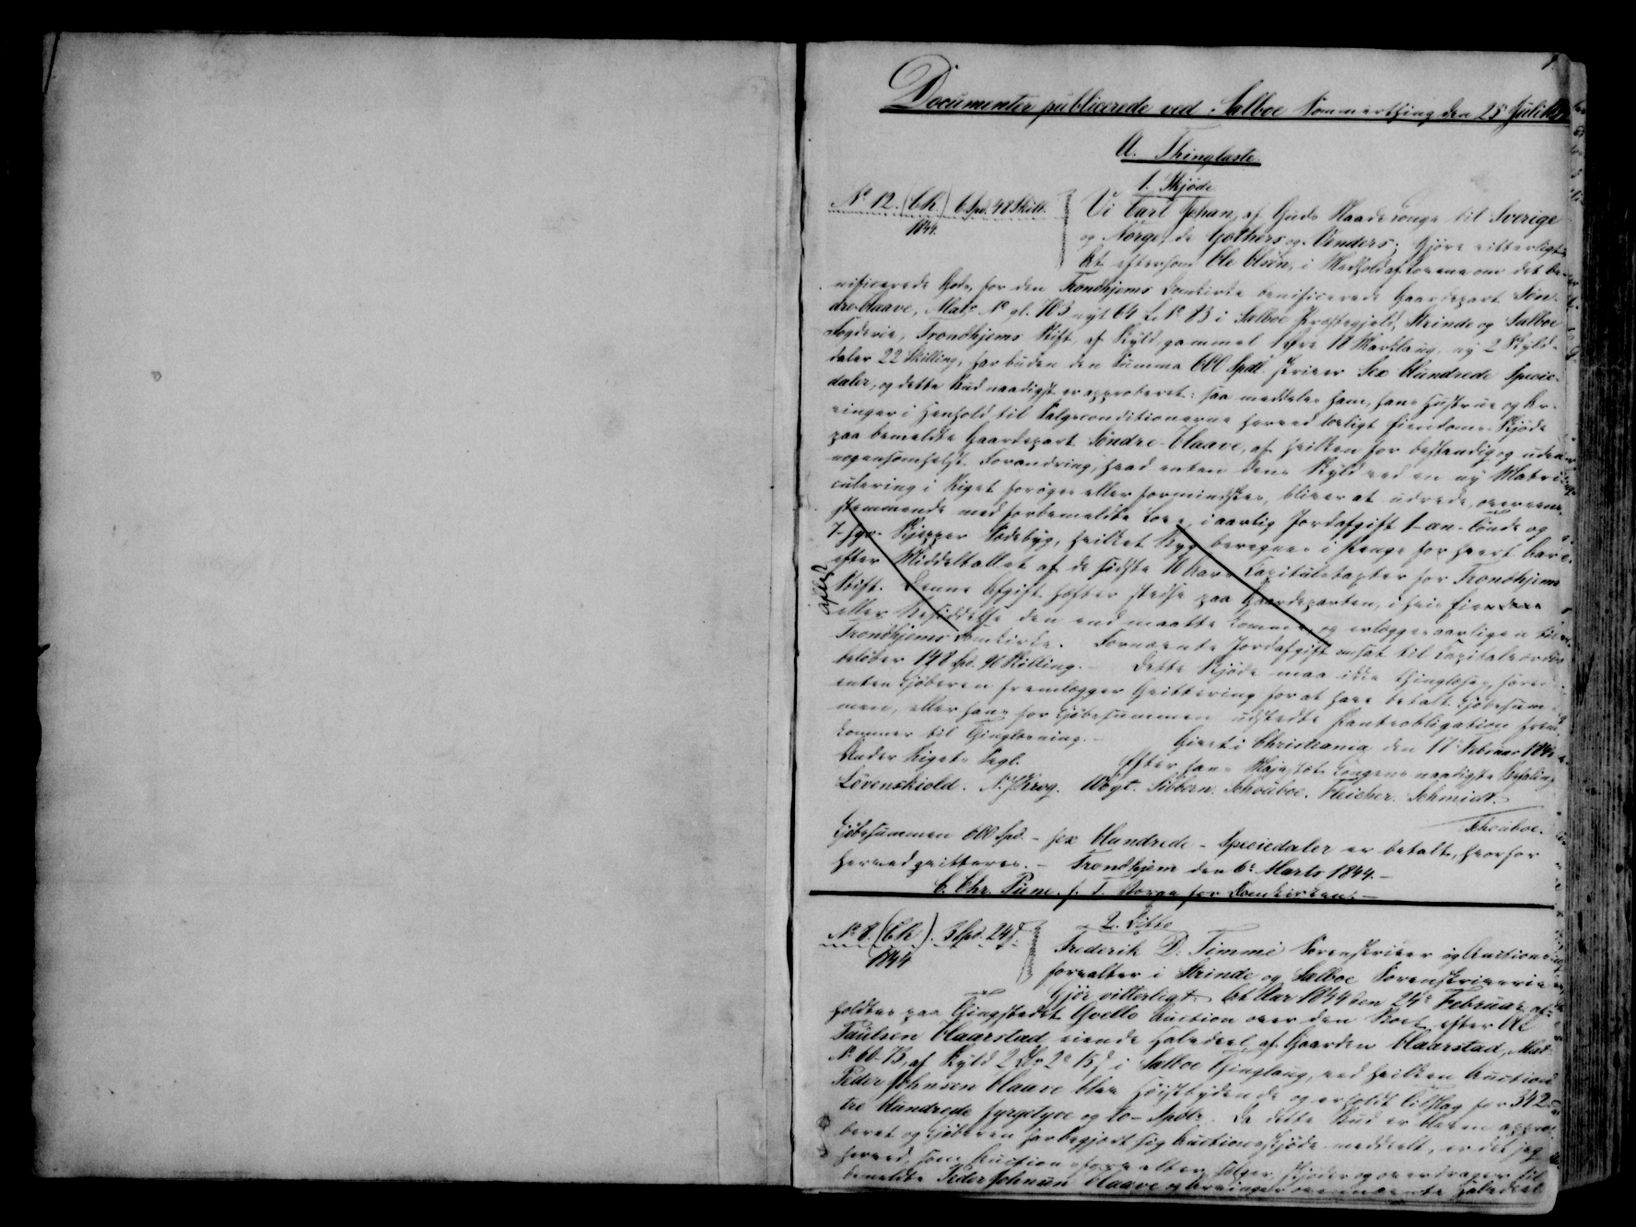 1.
Documenter publicerede ved Salboe Sommerthing den 25 Juli 1844
A. Thinglæste
1. Skjøde
No 12. (Ch) 6 Spd. 48 Skill.
1844.
Vi Carl Johan, af Guds Naade Konge til Sverige
og Norge, de Gothers og Venders; Gjøre vitterligt:
At eftersom Ole Olsen, i Medhold af Lovene om det be-
nificerede Gods, for den Trondhjems Domkirke benificerede Gaardepart Søn-
dre Haave, Matr. No gl. 103 nyt 64 L. No 83 i Sælboe Præstegjeld, Strinde og Salboe
Fogderie, Trondhjems Stift, af Skyld gammel 1 Øre 18 Marklaug, ny 2 Skyld-
daler 22 Skilling, har buden den Summa 600 Spdl. skriver Sex Hundrede Specie-
daler, og dette Bud naadigst er approberet: saa meddeles ham, hans Hustrue og Ar-
vinger i Henhold til Salgsconditionerne herved lovligt Eiendoms-Skjøde
paa bemeldte Gaardepart Søndre-Haave, af hvilken for bestandig og uden
nogensomhelst Forandring, hvad enten dens Skyld ved en ny Matri-
culering i Riget forøges eller formindskes, bliver at udrede, overeens-
stemmende med forbemeldte Lov, i aarlig Jordafgift 1-en-Tønde og
7-syv- Skjepper Sædebyg, hvilket Byg beregnes i Penge for hvert Aar
efter Middeltallet af de sidste 10 Aars Capitulstaxter for Trondhjems
Stift. Denne Afgift hefter stedse paa Gaardeparten, i hvis Eiendom
aflyst
eller Besiddelse den end maatte komme, og erlægges aarligen til
Trondhjems Domkirke. Fornævnte Jordafgift ansat til Capitalværdie
beløber 148 Spd. 96 Skilling. - Dette Skjøde maa ikke thinglæses, førend
enten Kjøberen fremlægger Qvittering for at have betalt Kjøbesum-
men, eller hans for Kjøbesummen udstedte Panteobligation frem-
kommer til Thinglæsning. - Givet i Christiania den 17 Februar 1844
Under Rigets Segl. Efter hans Majestæt Kongens naadigste Befaling
Løvenskiold. N. J. Krog. Vogt. Sibbern. Schouboe. Fleischer. Schmidt.
Schouboe.
Kjøbesummen 600 Spd. - sex Hundrede - Speciedaler er betalt, hvorfor
herved qvitteres. - Trondhjem den 6. Marts 1844. -
C. Chr. Piene. f. T. Værge for Domkirken. -
2. Ditto
No 8. (Ch). 3 Spd. 24 s.
1844
Frederik D. Timme Sorenskriver og Auctions-
forvalter i Strinde og Sælboe Sorenskriverie
Gjør vitterligt: At Aar 1844 den 24. Februar af-
holdtes paa Thingstedet Qvello Auction over den Boet efter Ole
Paulsen Haarstad eiende Halvdeel af Gaarden Haarstad, Matr.
No 60-73, af Skyld 2 Dlr 2 15 i Sælboe Thinglaug, ved hvilken Auction
Peder Johnsen Haave blev Høistbydende og erholdt Tilslag for 342-
tre Hundrede fyrgetyve og to- Spdlr. Da dette Bud er bleven appro-
beret og Kjøberen har begjert sig Auctionsskjøde meddeelt, er det jeg
herved, som Auctionsforvalter, sælger, skjøder og overdrager til
bemeldte Peder Johnsen Haave og Arvinger ovennævnte Halvdeel